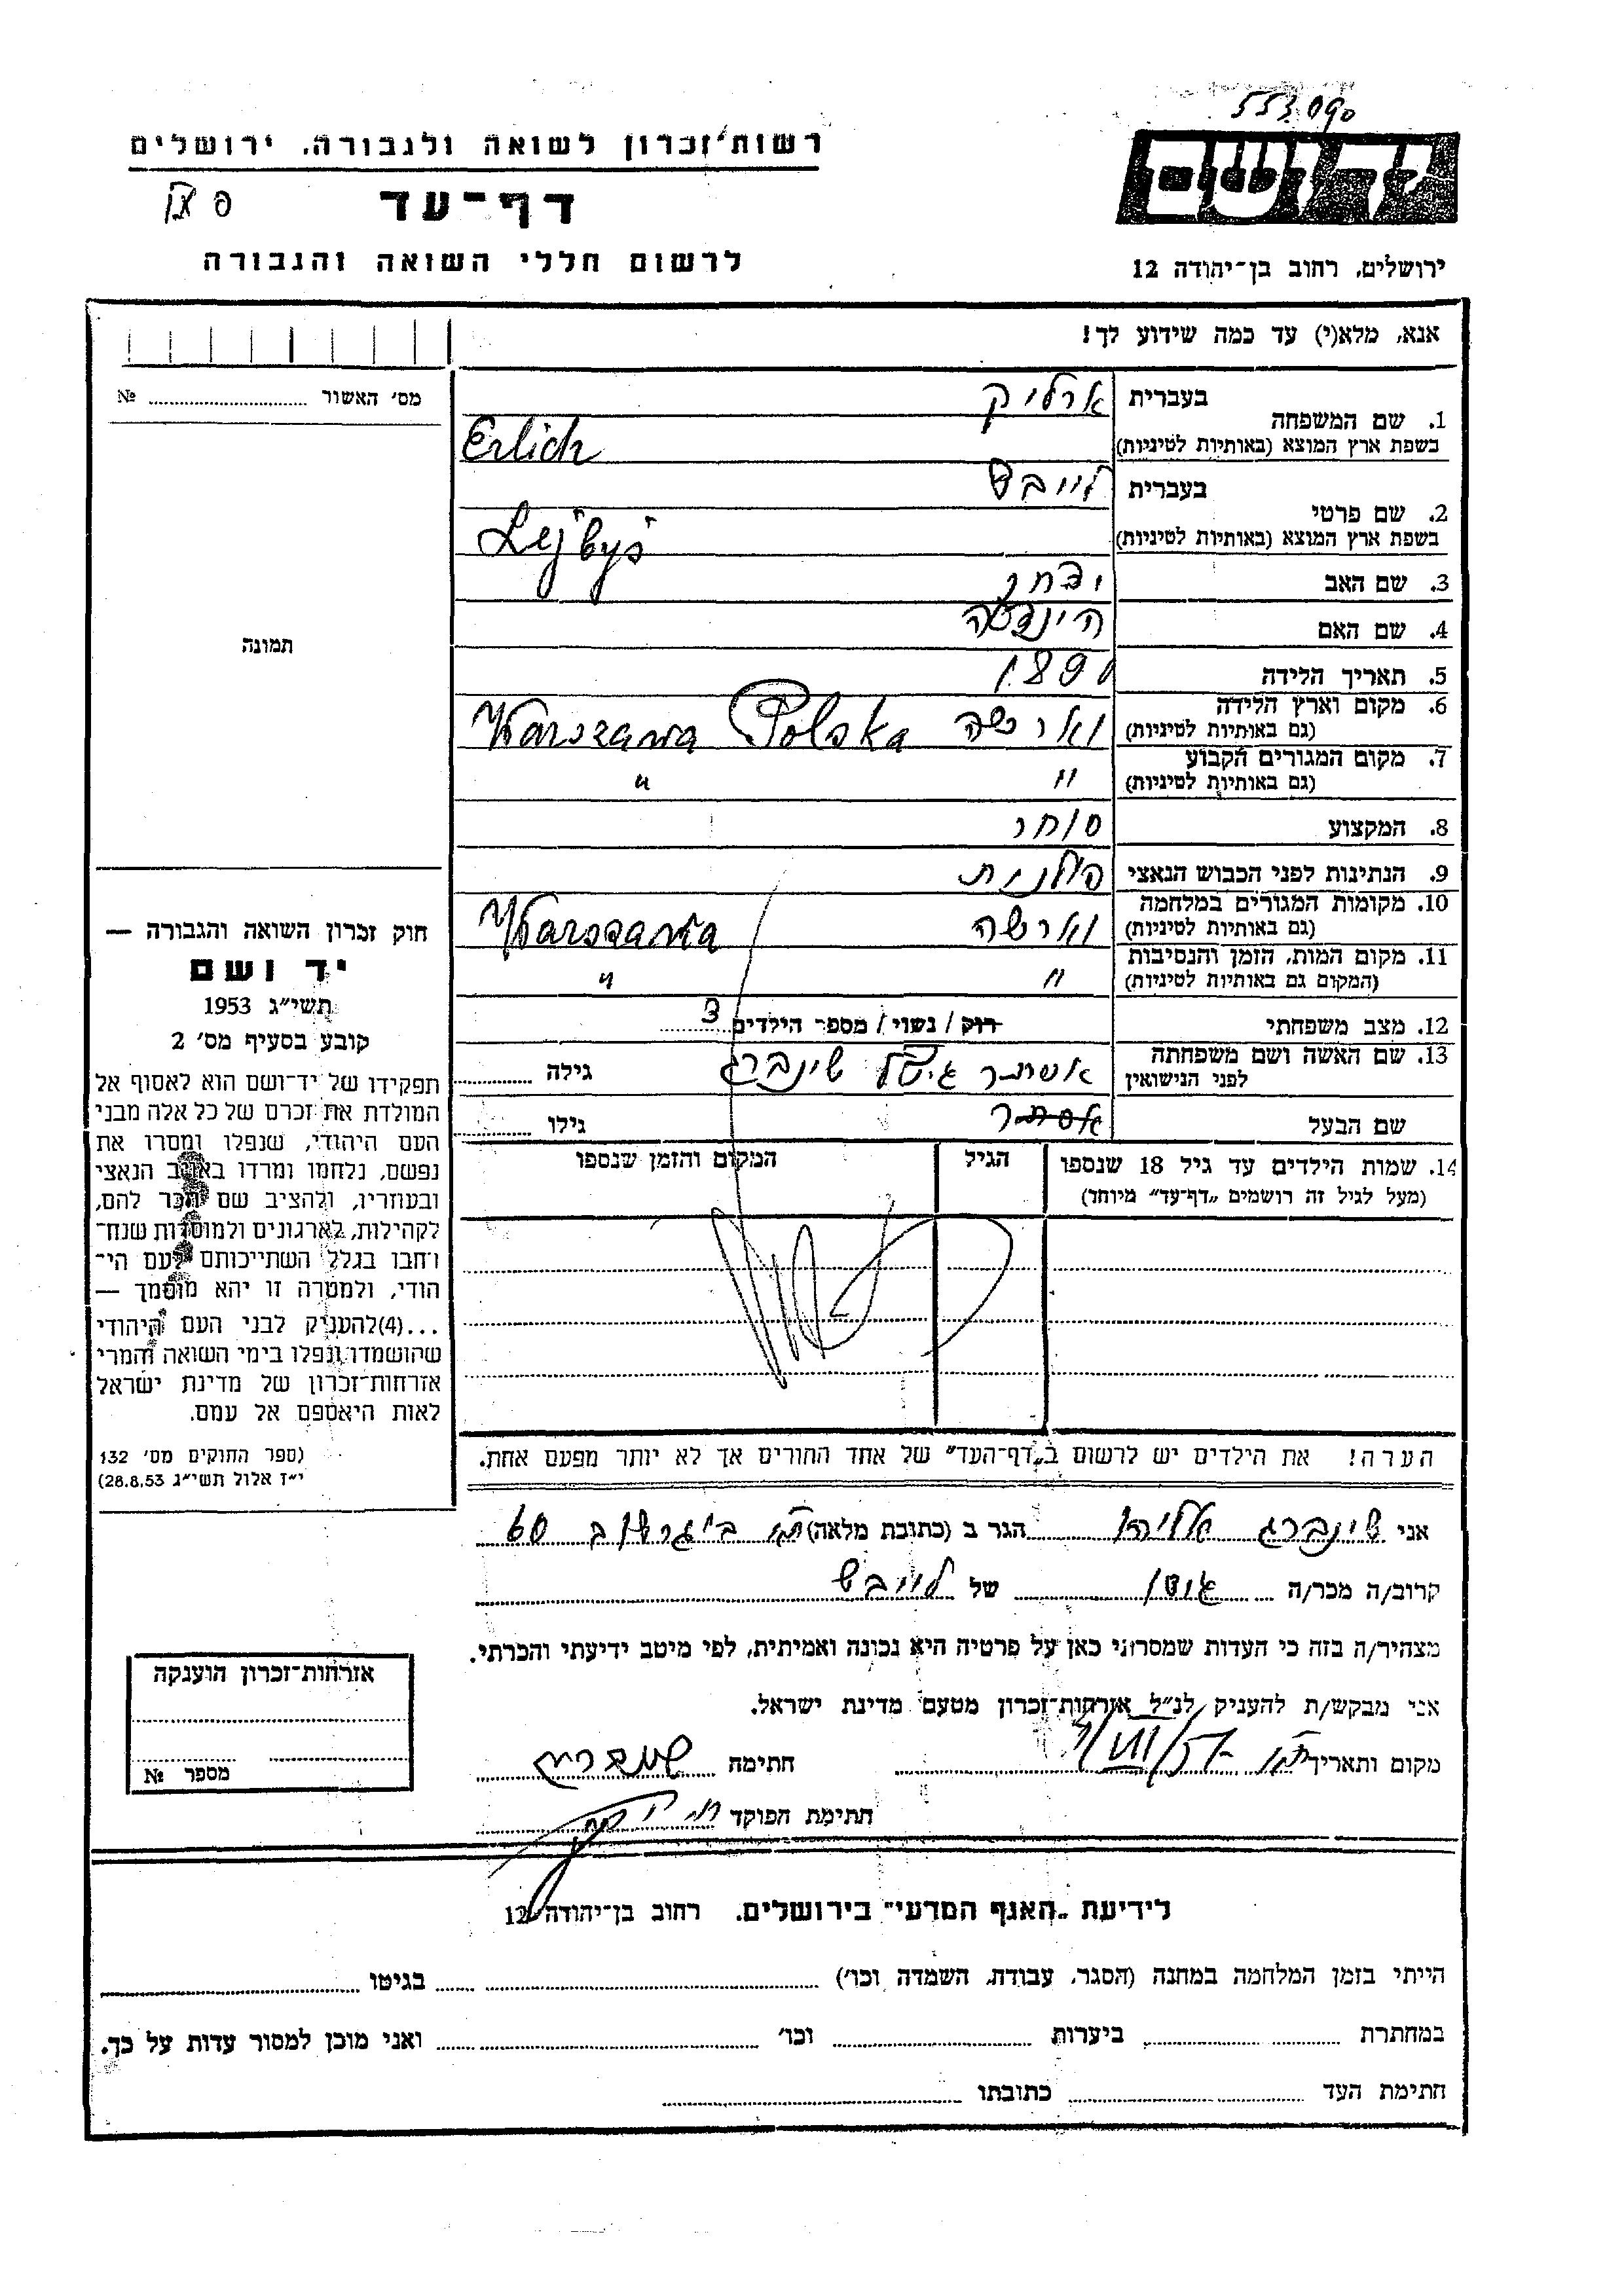 553090
רשות־זכרון לשואה ולגבורה, ירושלים
יד ושם
דף־עד
לרשום חללי השואה והגבורה
ירושלים, רחוב בן־יהודה 12
אנא, מלא(י) עד כמה שידוע לך!
מס׳ האשור № 
1. שם המשפחה בעברית ארליק
בשפת ארץ המוצא (באותיות לטיניות) Erlich
2. שם פרטי בעברית לייבש
בשפת ארץ המוצא (באותיות לטיניות) Lejbys
3. שם האב
4. שם האם
5. תאריך הלידה 1890
6. מקום וארץ הלידה (גם באותיות לטיניות) ווארשה Warszawa Polska
7. מקום המגורים הקבוע (גם באותיות לטיניות) " "
8. המקצוע סוחר
9. הנתינות לפני הכבוש הנאצי פולנית
10. מקומות המגורים במלחמה (גם באותיות לטיניות) ווארשה Warszawa
11. מקום המות, הזמן והנסיבות (המקום גם באותיות לטיניות) " "
12. מצב משפחתי רוק / נשוי / מספר הילדים 3
13. שם האשה ושם משפחתה לפני הנישואין שינברג גילה
שם הבעל אסתר גילו
14. שמות הילדים עד גיל 18 שנספו
(מעל לגיל זה רושמים „דף־עד" מיוחד)
הגיל
המקום והזמן שנספו
תמונה
חוק זכרון השואה והגבורה —
יד ושם
תשי״ג 1953
קובע בסעיף מס׳ 2
תפקידו של יד־ושם הוא לאסוף אל
המולדת את זכרם של כל אלה מבני
העם היהודי, שנפלו ומסרו את
נפשם, נלחמו ומרדו באויב הנאצי
ובעוזריו, ולהציב שם וזכר להם,
לקהילות, לארגונים ולמוסדות שנח־
רחבו בגלל השתייכותם לעם הי־
הודי, ולמטרה זו יהא מוסמך —
...(4)להעניק לבני העם היהודי
שהושמדו ונפלו בימי השואה והמרי
אזרחות־זכרון של מדינת ישראל
לאות היאספם אל עמם.
(ספר החוקים מס׳ 132
י״ז אלול תשי״ג 28.8.53)
הערה! את הילדים יש לרשום ב„דף־העד" של אחד ההורים אך לא יותר מפעם אחת.
אני שינברג הגר ב (כתובת מלאה) 60
קרוב/ה מכר/ה של לייבש
מצהיר/ה בזה כי העדות שמסרתי כאן על פרטיה היא נכונה ואמיתית, לפי מיטב ידיעתי והכרתי.
אני מבקש/ת להעניק לנ״ל אזרחות־זכרון מטעם מדינת ישראל.
מקום ותאריך חתימה
חתימת הפוקד
אזרחות־זכרון הוענקה
מספר №
לידיעת „האגף המדעי" בירושלים. רחוב בן־יהודה 12
הייתי בזמן המלחמה במחנה (הסגר, עבודה, השמדה וכו׳) בגיטו
במחתרת ביערות וכו׳ ואני מוכן למסור עדות על כך.
חתימת העד כתובתו